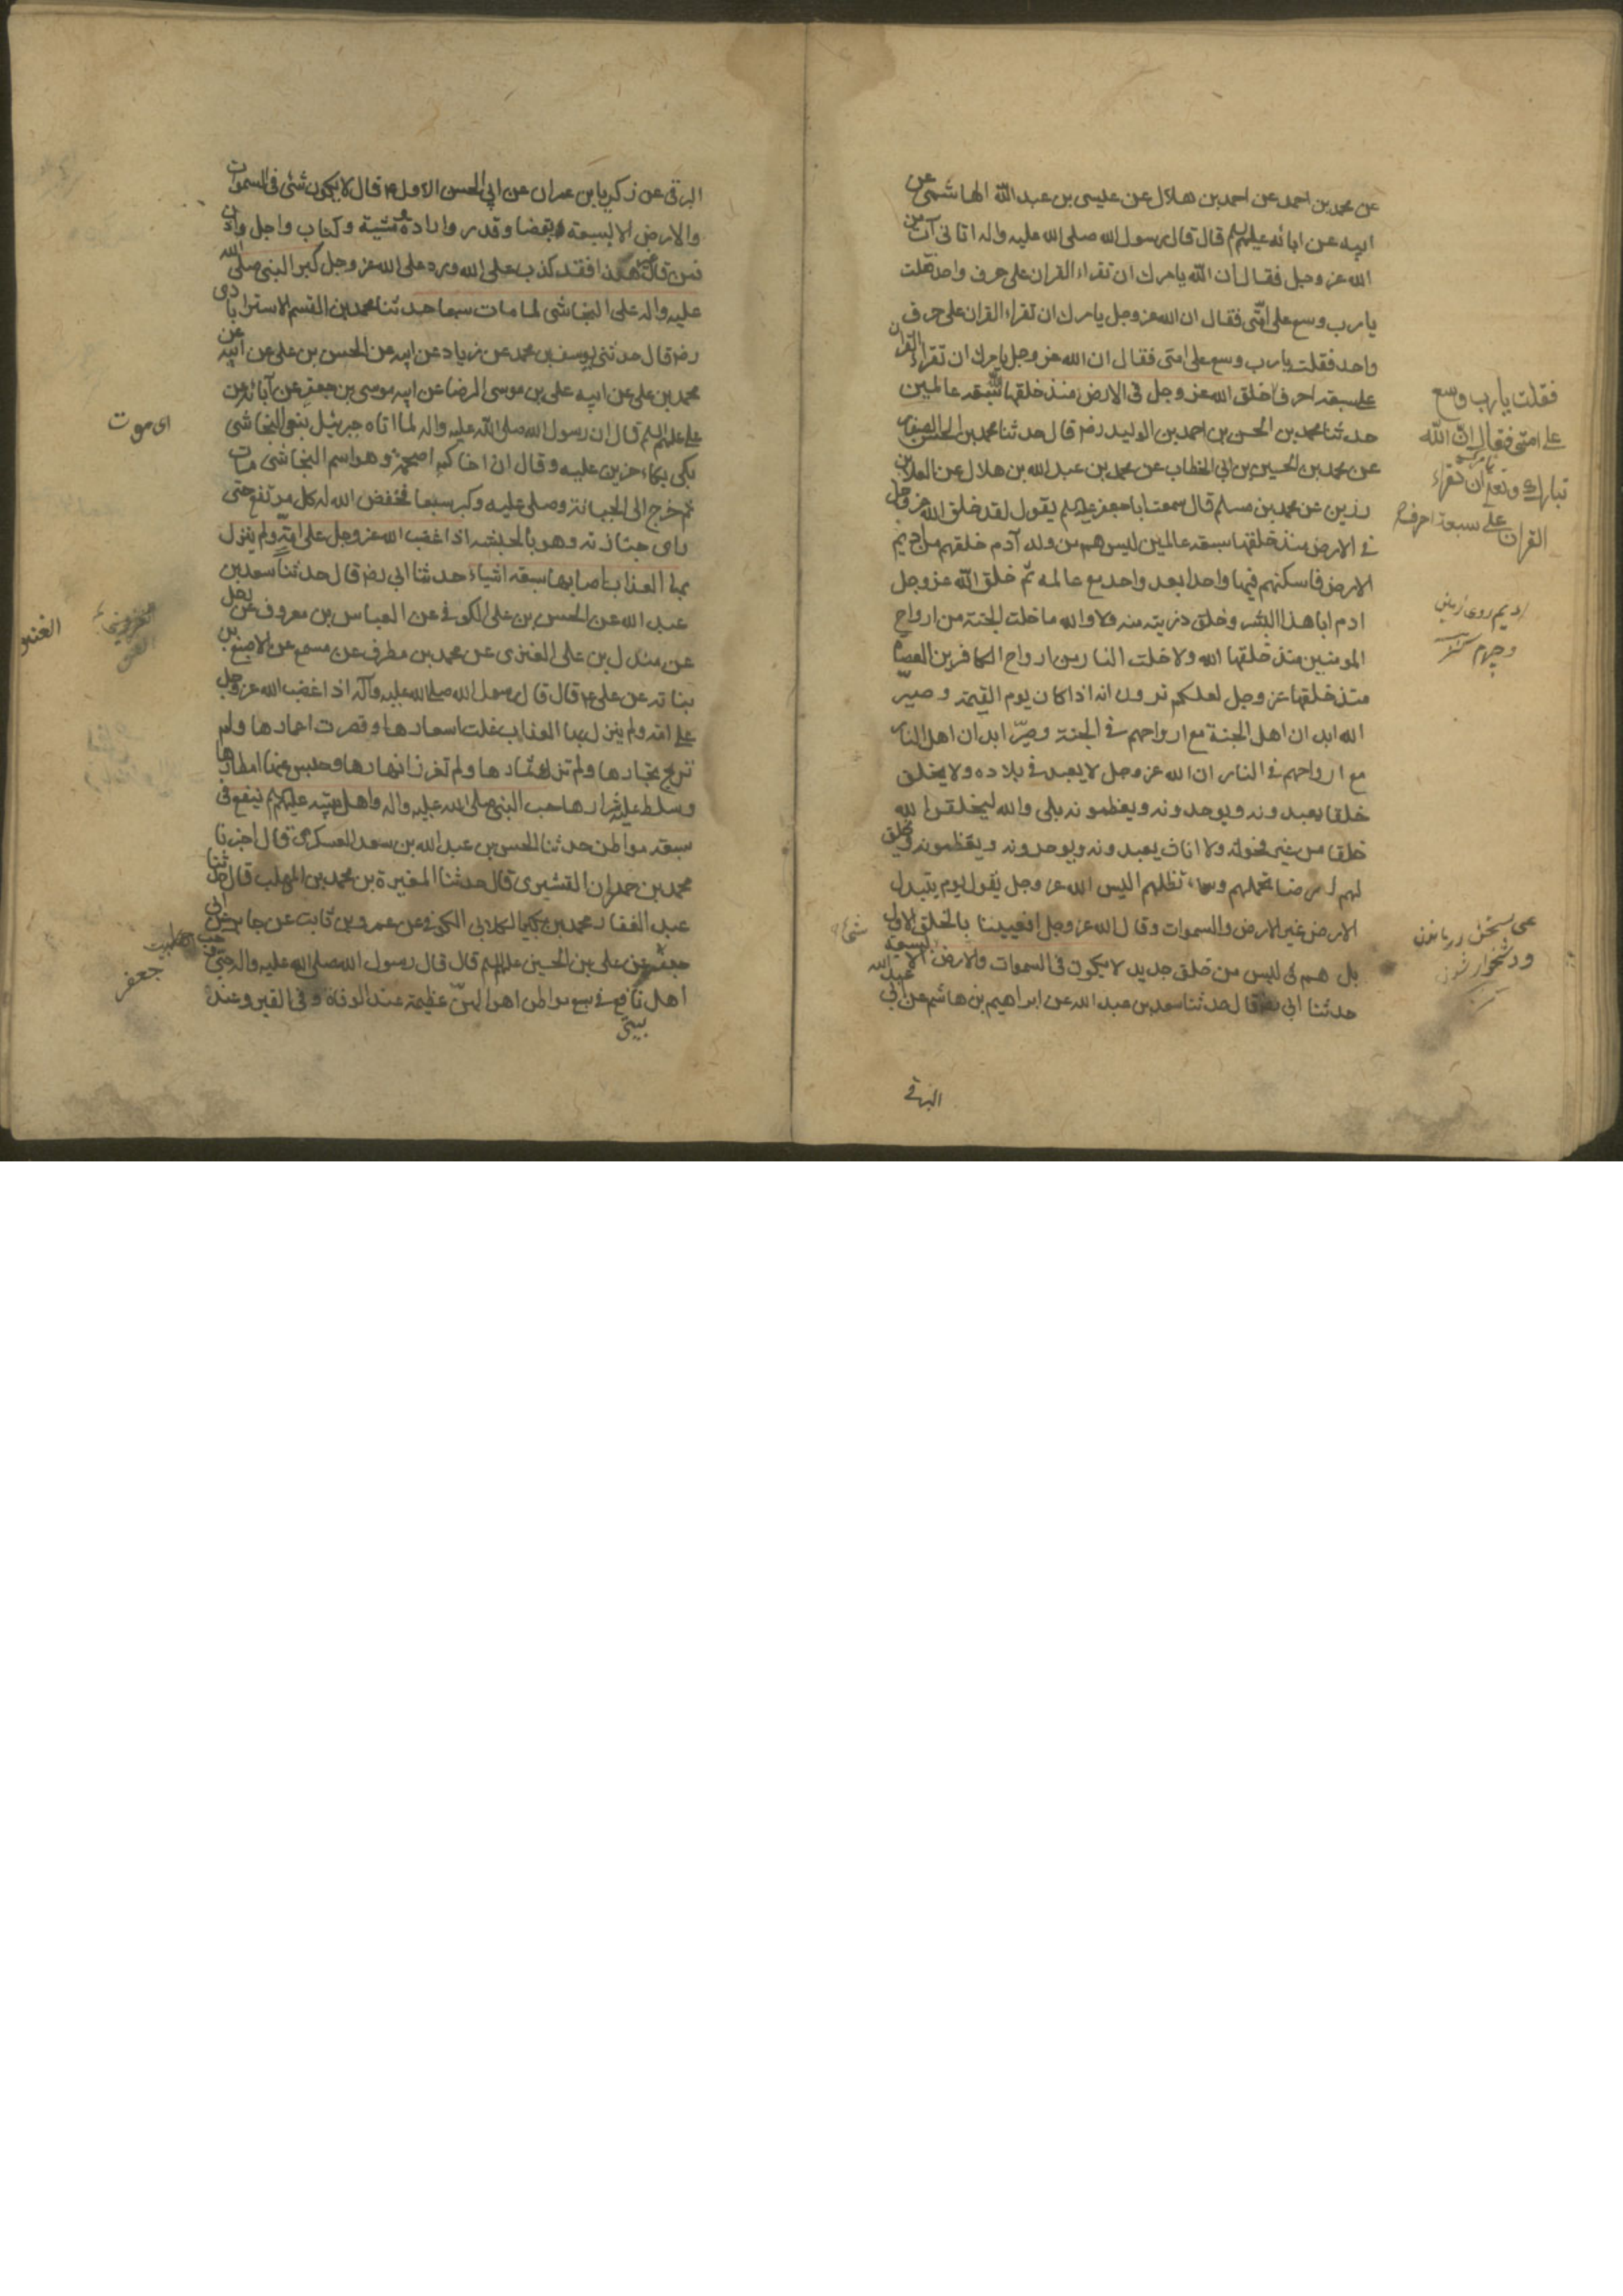 عن محمد بن احمد عن احمد بن هلال عن عيسى بن عبد الله الهاشمى عن
ابيه عن ابائه عليهم السلم قال قال رسول الله صلى الله عليه واله اتانى آت من
الله عز وجل فقال ان الله يامرك ان تقراء القران على حرف واحد فقلت
يارب وسع على امتى فقال ان الله عز وجل يامرك ان تقراء القران على حرف
واحد فقلت يارب وسع على امتى فقال ان الله عز وجل يامرك ان تقراء القران
على سبعة احرف خلق الله عز وجل فى الارض منذ خلقها سبعة عالمين
حدثنا محمد بن الحسن بن احمد بن الوليد رضه قال حدثنا محمد بن الحسن الصفار
عن محمد بن الحسين بن ابى الخطاب عن محمد بن عبد الله بن هلال عن العلا بن
رزين عن محمد بن مسلم قال سمعت ابا جعفر عليه السلم يقول لقد خلق الله عز وجل
فى الارض منذ خلقها سبعة عالمين ليس هم من ولد آدم خلقهم من اديم
الارض فاسكنهم فيها واحدا بعد واحد مع عالمه ثم خلق الله عز وجل
ادم ابا هذا البشر وخلق ذريته منه فلا والله ما خلت الجنة من ارواح
المومنين منذ خلقها الله ولا خلت النار من ارواح الكافرين العصاة
منذ خلقها عز وجل لعلكم ترون انه اذا كان يوم القيمة وصير
الله ابدان اهل الجنة مع ارواحهم فى الجنة وصير ابدان اهل النار
مع ارواحهم فى النار ان الله عز وجل لا يعبد فى بلاده ولا يخلق
خلقا يعبدونه ويوحدونه ويعظمونه بلى والله ليخلقن الله
خلقا من غير فحولة ولا اناث يعبدونه ويوحدونه ويعظمونه ويخلق
لهم ارضا تحملهم وسماء تظلهم اليس الله عز وجل يقول يوم يتبدل
الارض غير الارض والسموات وقال الله عز وجل افعيينا بالخلق الاول
بل هم فى لبس من خلق جديد لا يكون فى السموات والارض الا بسبعة
حدثنا ابى رضه قال حدثنا سعد بن عبد الله عن ابراهيم بن هاشم عن ابى عبد الله
البرقى
فقلت يارب وسع
على امتى فقال ان الله
تبارك وتعالى يامرك ان تقراء
القران على سبعة احرف
اديم روى زمين
البرقى عن زكريا بن عمران عن ابى الحسن الاول ع قال لا يكون شئ فى السموات
والارض الا بسبعة بقضا وقدر وارادة ومشية وكتاب واجل واذن
فمن قال غير هذا فقد كذب على الله ورد على الله عز وجل كبر النبى صلى الله
عليه واله على النجاشى لما مات سبعا حدثنا محمد بن القسم الاسترابادى
رضه قال حدثنى يوسف بن محمد عن زياد عن ابيه عن الحسن بن على عن ابيه عن
محمد بن على عن ابيه على بن موسى الرضا عن ابيه موسى بن جعفر عن آبائه عن
على عليهم السلم قال ان رسول الله صلى الله عليه واله لما اتاه جبرئيل بنعى النجاشى
بكى بكاء حزين عليه وقال ان اخاكم اصحمة وهو اسم النجاشى مات
ثم خرج الى الجبانة وصلى عليه وكبر سبعا فخفض الله له كل مرتفع حتى
راى جنازته وهو بالحبشه اذا غضب الله عز وجل على امة ولم ينزل
بها العذاب اصابها سبعة اشياء حدثنا ابى رضه قال حدثنا سعد بن
عبد الله عن الحسن بن على الكوفى عن العباس بن معروف عن رجل
عن مندل بن على العنزى عن محمد بن مطرف عن مسمع عن الاصبغ بن
نباته عن على ع قال قال رسول الله صلى الله عليه وآله اذا غضب الله عز وجل
على امة ولم ينزل بها العذاب غلت اسعارها وقصرت اعمارها ولم
تربح تجارها ولم تزك ثمارها ولم تغزر انهارها وحبس عنها امطارها
وسلط عليها شرارها حب النبى صلى الله عليه واله واهل بيته عليهم السلم ينفع فى
سبعة مواطن حدثنا الحسن بن عبد الله بن سعد العسكرى قال اخبرنا
محمد بن حمدان القشيرى قال حدثنا المغيرة بن محمد بن المهلب قال حدثنا
عبد الغفار محمد بن بكير الكلابى الكوفى عن عمرو بن ثابت عن جابر عن ابى
جعفر عن على بن الحسين عليهم السلم قال قال رسول الله صلى الله عليه واله حبى وحب
اهل بيتى نافع فى سبع مواطن اهوالهن عظيمة عند الوفاة وفى القبر وعند
اى موت
جعفر